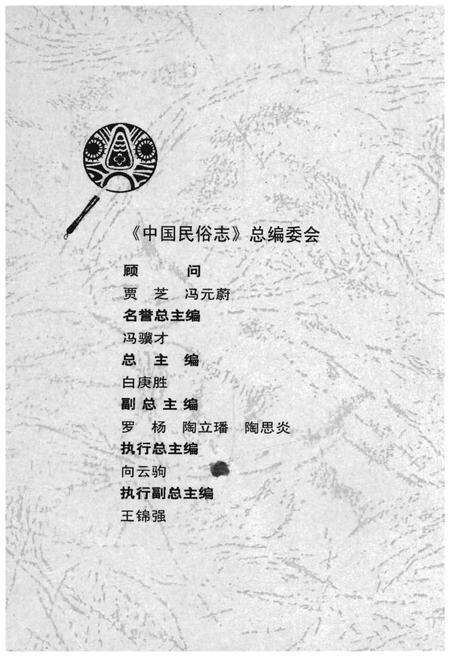 《中国民俗志》总编委会
顾 问
贾 芝 冯元蔚
名誉总主编
冯骥才
总 主 编
白庚胜
副总主编
罗 杨 陶立璠 陶思炎
执行总主编
向云驹
执行副总主编
王锦强